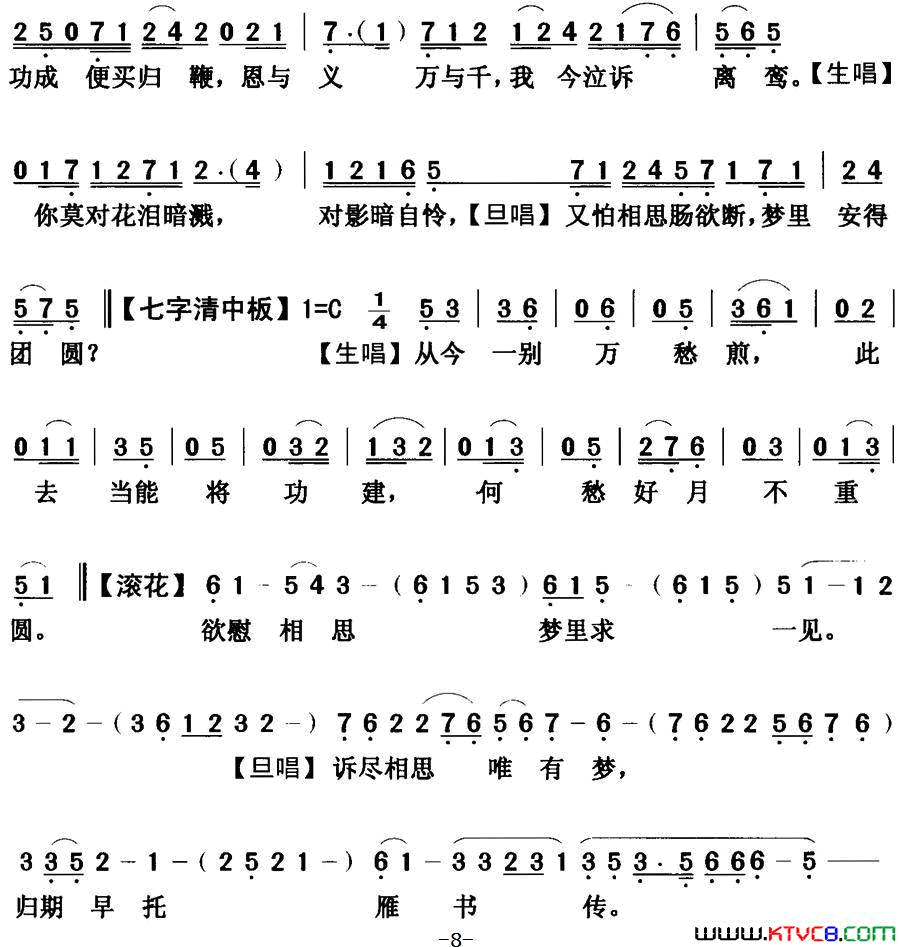 2 5 0 7 1 2 4 2 0 2 1 | 7 · ( 1 ) 7 1 2 1 2 4 2 1 7 6 | 5 6 5
功成 便买归 鞭，恩与 义 万与千，我 今泣诉 离 鸾。【生唱】
0 1 7 1 2 7 1 2 · ( 4 ) | 1 2 1 6 5 7 1 2 4 5 7 1 7 1 | 2 4
你莫对花泪暗溅， 对影暗自怜，【旦唱】又怕相思肠欲断，梦里 安得
5 7 5 ‖【七字清中板】1=C 1/4 5 3 | 3 6 | 0 6 | 0 5 | 3 6 1 | 0 2 |
团 圆？ 【生唱】从今 一别 万 愁 煎， 此
0 1 1 | 3 5 | 0 5 | 0 3 2 | 1 3 2 | 0 1 3 | 0 5 | 2 7 6 | 0 3 | 0 1 3 |
去 当能 将 功 建， 何 愁 好 月 不 重
5 1 ‖【滚花】6 1 - 5 4 3 - - ( 6 1 5 3 ) 6 1 5 - - ( 6 1 5 ) 5 1 - 1 2
圆。 欲慰 相 思 梦里求 一见。
3 - 2 - ( 3 6 1 2 3 2 - ) 7 6 2 2 7 6 5 6 7 - 6 - ( 7 6 2 2 5 6 7 6 )
【旦唱】诉尽相思 唯 有 梦，
3 3 5 2 - 1 - ( 2 5 2 1 - ) 6 1 - 3 3 2 3 1 3 5 3 · 5 6 6 6 6 - 5 ——
归期 早 托 雁 书 传。
-8-
www.KTVC8.com